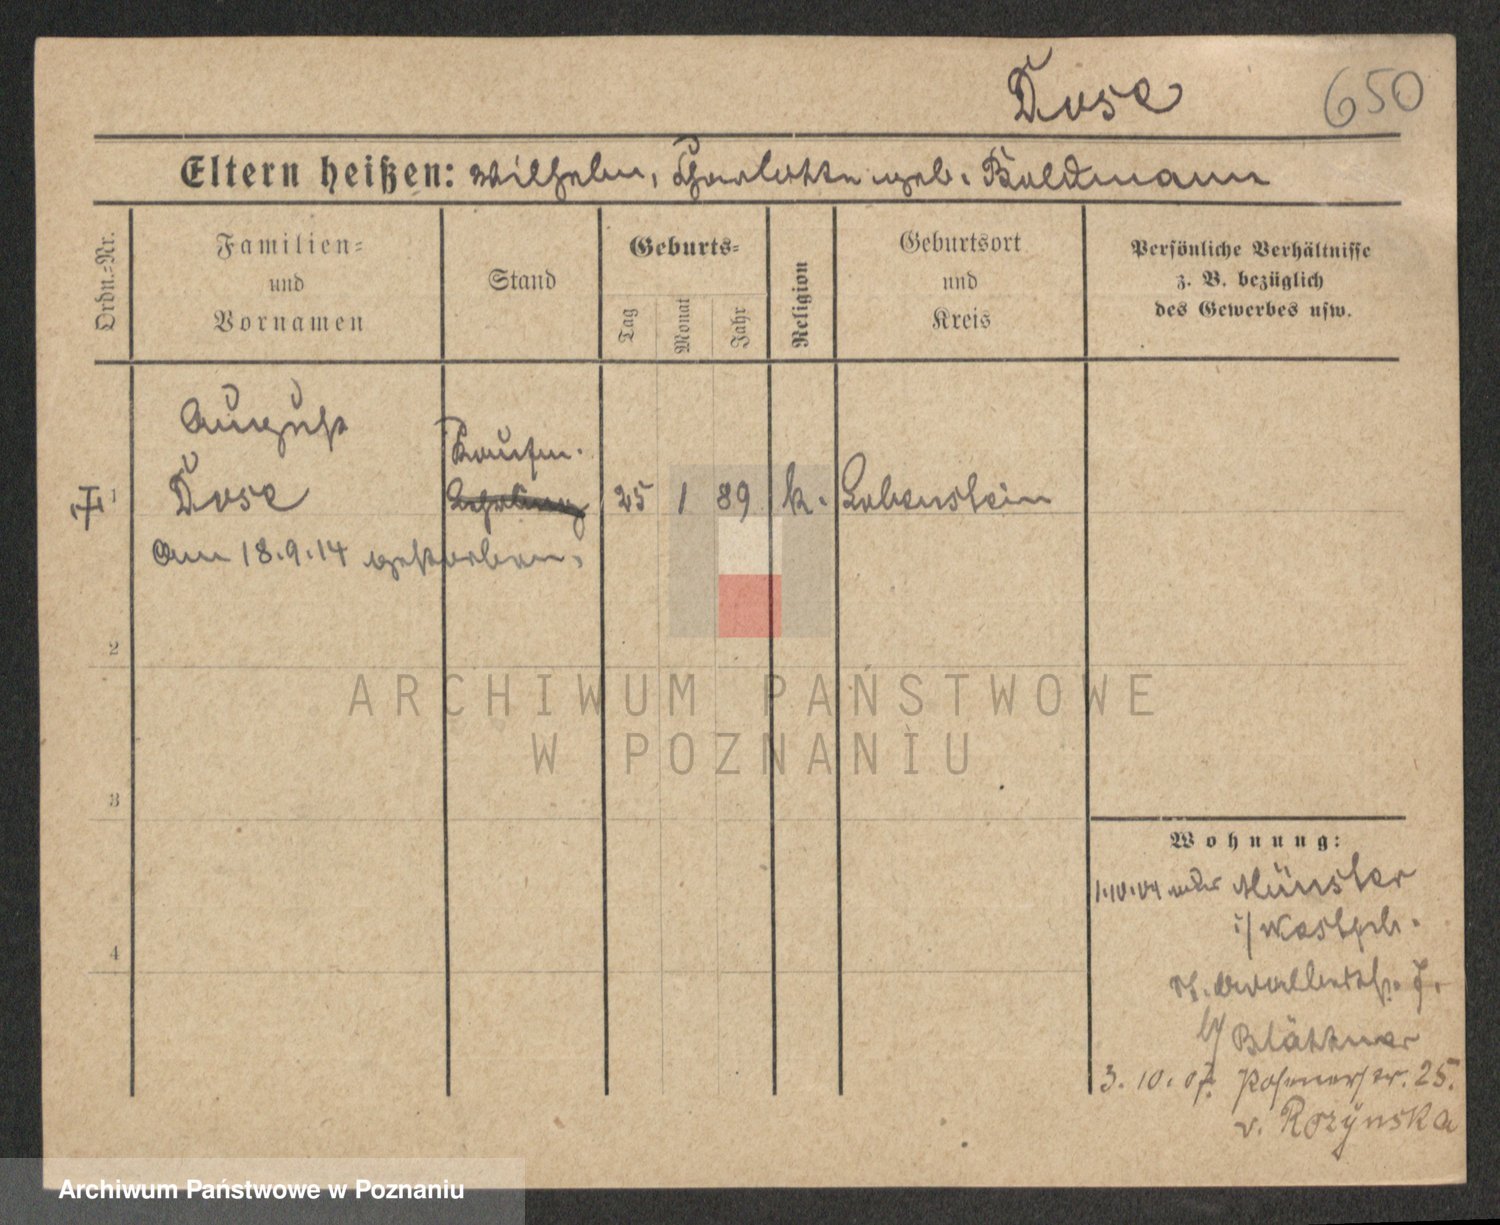 Dose 650
Eltern heißen: Wilhelm, Charlotte geb. Boldmann
Ordn.=Nr.
Familien=
und
Vornamen
Stand
Geburts=
Tag
Monat
Jahr
Religion
Geburtsort
und
Kreis
Persönliche Verhältnisse
z. B. bezüglich
des Gewerbes usw.
August
Kaufm.
1 Dose Lehrling 25 1 89 k. Lobenstein
Am 18.9.14 gestorben.
2
3
4
Wohnung:
1.10.04 Münster
i/ Westph.
7.
b/ Blättner
3.10.07. Posenerstr. 25.
v. Rozynska
ARCHIWUM PAŃSTWOWE
W POZNANIU
Archiwum Państwowe w Poznaniu